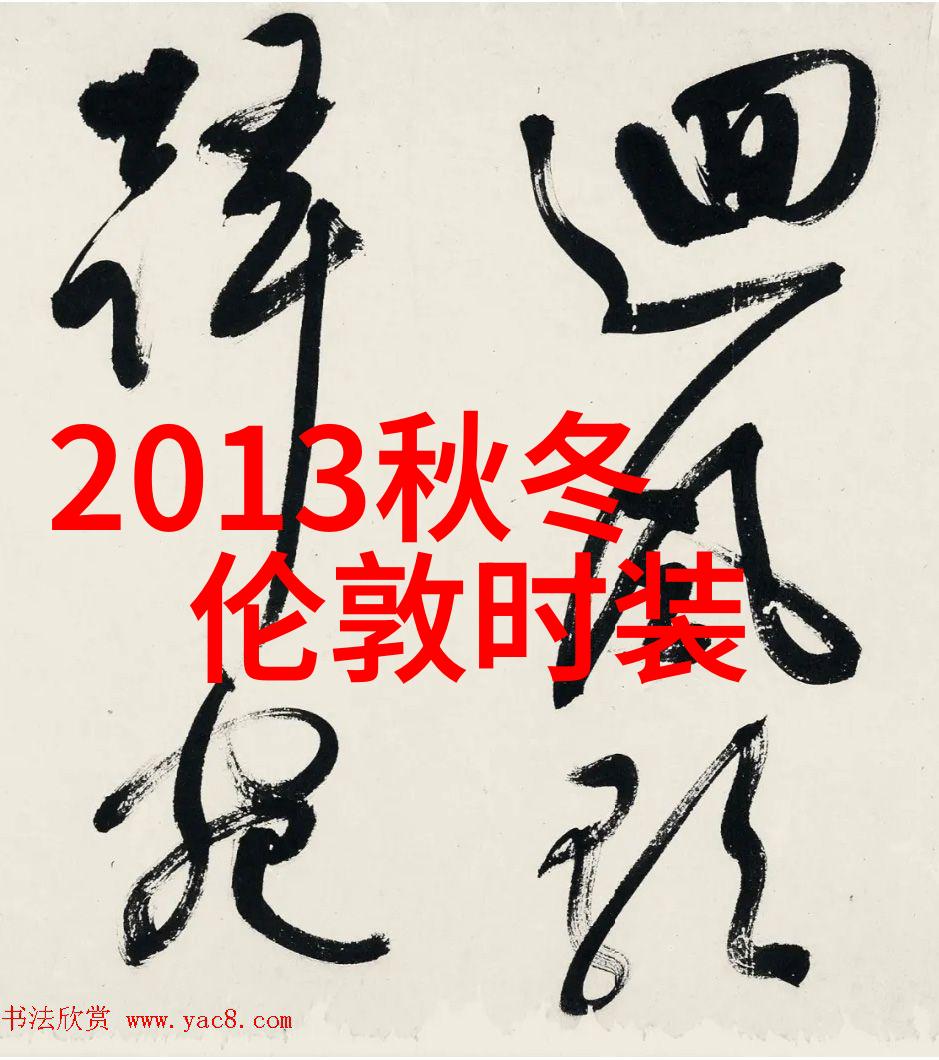 迴風
2013秋冬
伦敦时装
书法欣赏 www.yac8.com